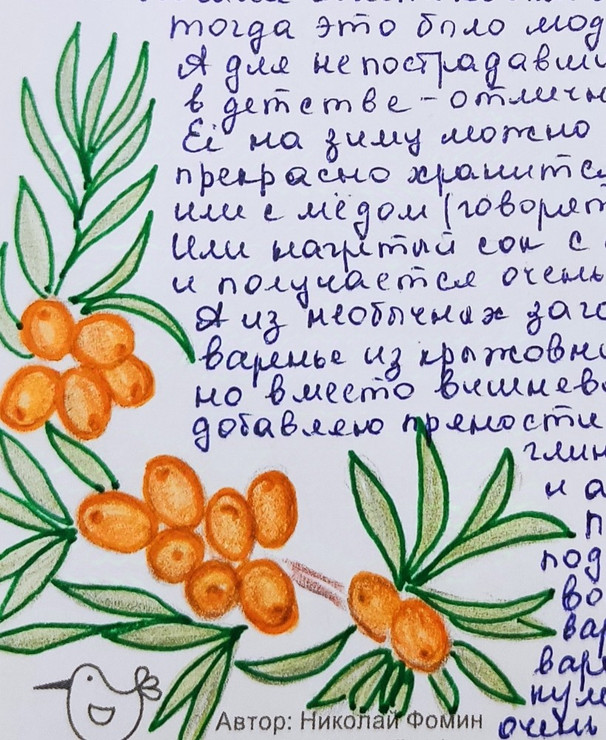 тогда это было мод
А для непострадавши
в детстве - отличн
Её на зиму можно
прекрасно хранится
или с мёдом (говорят
Или нагретый сок с
и получается очень
А из необычных заго
варенье из крыжовни
но вместо вишневы
добавлено пряности
глин
на
п
под
во
вар
вар
нуле
очень
Автор: Николай Фомин